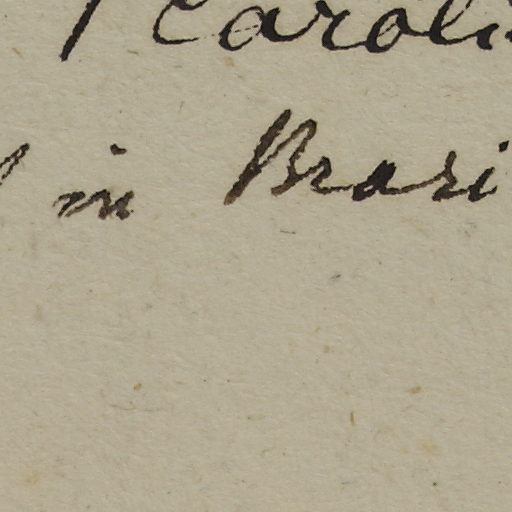 Caroli
in Brasi